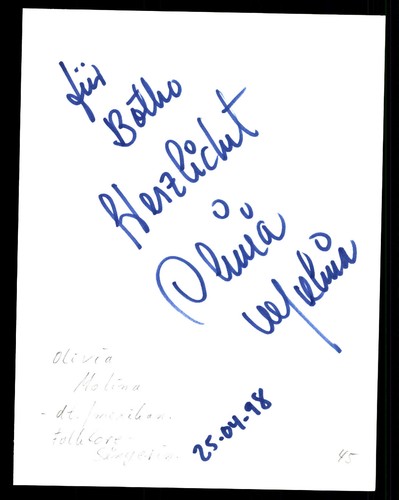 für
Botho
Herzlichst
Olivia
Molina
25-04-98
Olivia
Molina
- dt./mexikan.
Folklore-
Sängerin
45